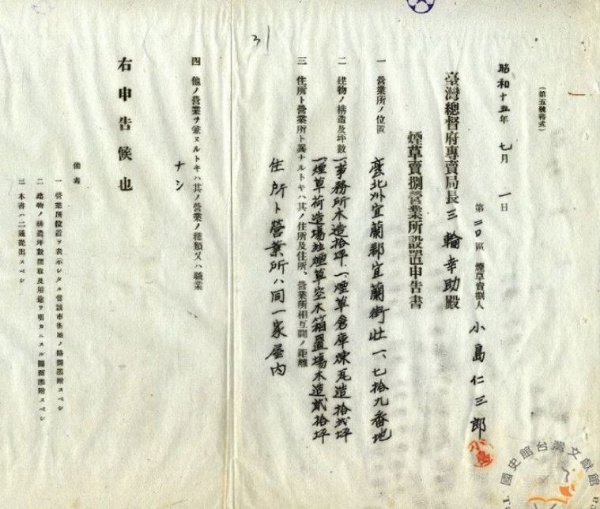 31
(第五號樣式)
昭和十五年 七月 一日
第二〇區 煙草賣捌人 小島仁三郎
小島
臺灣總督府專賣局長 三輪幸助殿
煙草賣捌營業所設置申告書
一 營業所ノ位置 臺北州宜蘭郡宜蘭街壯一、七拾九番地
二 建物ノ構造及坪數 一、事務所木造拾坪、一、煙草倉庫煉瓦造拾弐坪
一、煙草荷造場並煙草空木箱置場木造貳拾坪
三 住所ト營業所ト異ナルトキハ其ノ住所及住所、營業所相互間ノ距離
住所ト營業所ハ同一家屋内
四 他ノ營業ヲ兼ヌルトキハ其ノ營業ノ種類又ハ職業
ナシ
右申告候也
備考
一 營業所位置ヲ表示シタル當該市街地ノ略圖添附スベシ
二 建物ノ構造坪數煙草及用途ヲ明カニスル略圖添附スベシ
三 本書ハ二通提出スベシ
國史館台灣文獻館